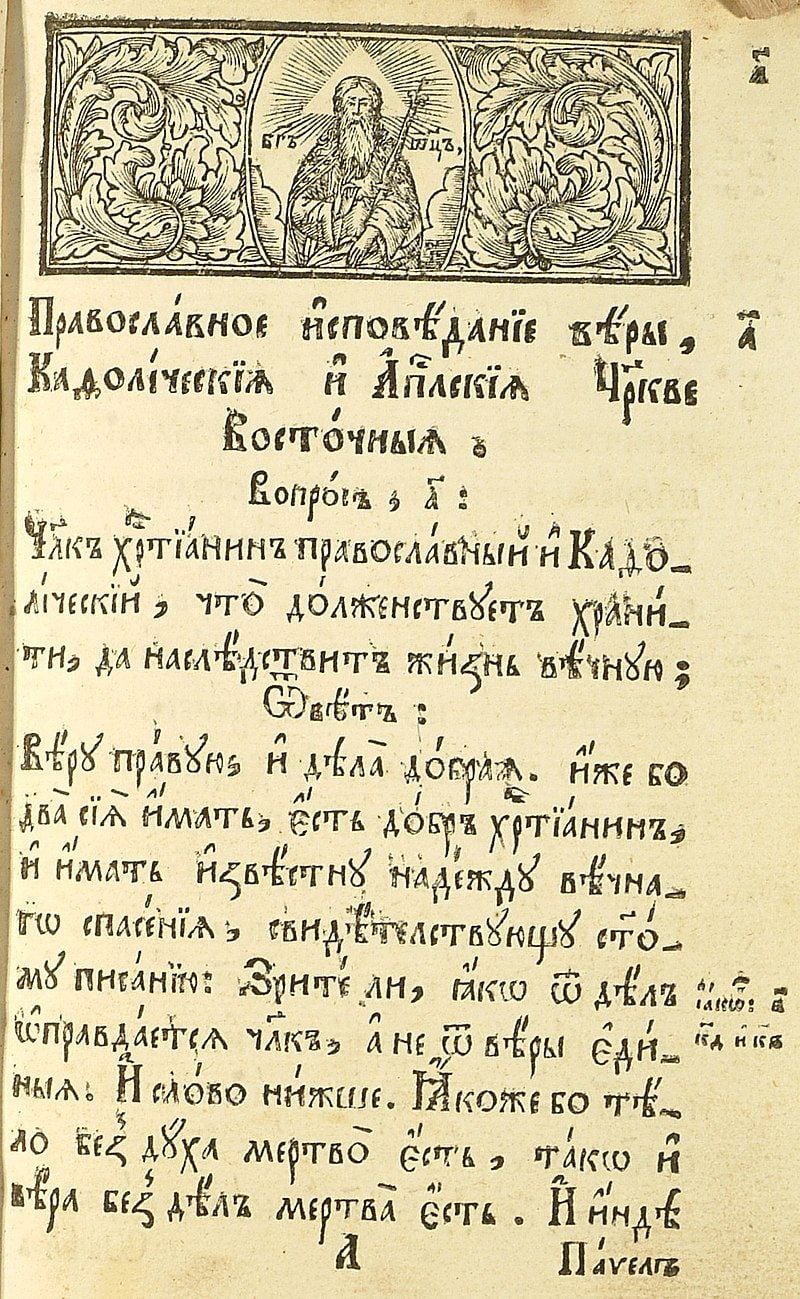 а҃
Бг҃ъ ѻ҆ц҃ъ,
Правосла́вное и҆сповѣ́данїе вѣ́ры, а҃
Каѳолі́ческїѧ и҆ А҆пⷭ҇лскїѧ Цр҃кве
Восто́чныѧ ъ
Вопро́съ , а҃ :
Чл҃къ хрⷭ҇тїа́нинъ правосла́вный и҆ Каѳо-
лі́ческїй , что̀ до́лженствꙋетъ храни́-
ти, да наслѣ́дствитъ жи́знь вѣ́чнꙋю ;
Ѿвѣ́тъ :
Вѣ́рꙋ пра́вꙋю, и҆ дѣла̀ дѡ́браѧ. и҆́же бо
два̀ сїѧ̀ и҆́мать, є҆́сть до́бръ хрⷭ҇тїа́нинъ,
и҆ и҆́мать и҆звѣ́стнꙋ наде́ждꙋ вѣ́чна-
гѡ спасе́нїѧ , свидѣ́телствꙋющꙋ ст҃о́-
мꙋ писа́нїю: Зрите́ ли, ꙗ҆́кѡ ѿ дѣ́лъ
ѡ҆правда́етсѧ чл҃къ, а҆ не ѿ вѣ́ры є҆ди́-
ныѧ. И҆ сло́во ни́жше. Ꙗ҆́коже бо тѣ́-
ло без̾ дꙋ́ха мертво̀ є҆́сть , та́кѡ и҆
вѣ́ра без̾ дѣ́лъ мертва̀ є҆́сть . И҆ и҆́ндѣ
ꙗ҆́кѡⷡ: в҃
к҃д и҆ к҃ѕ
А Па́ѵелъ